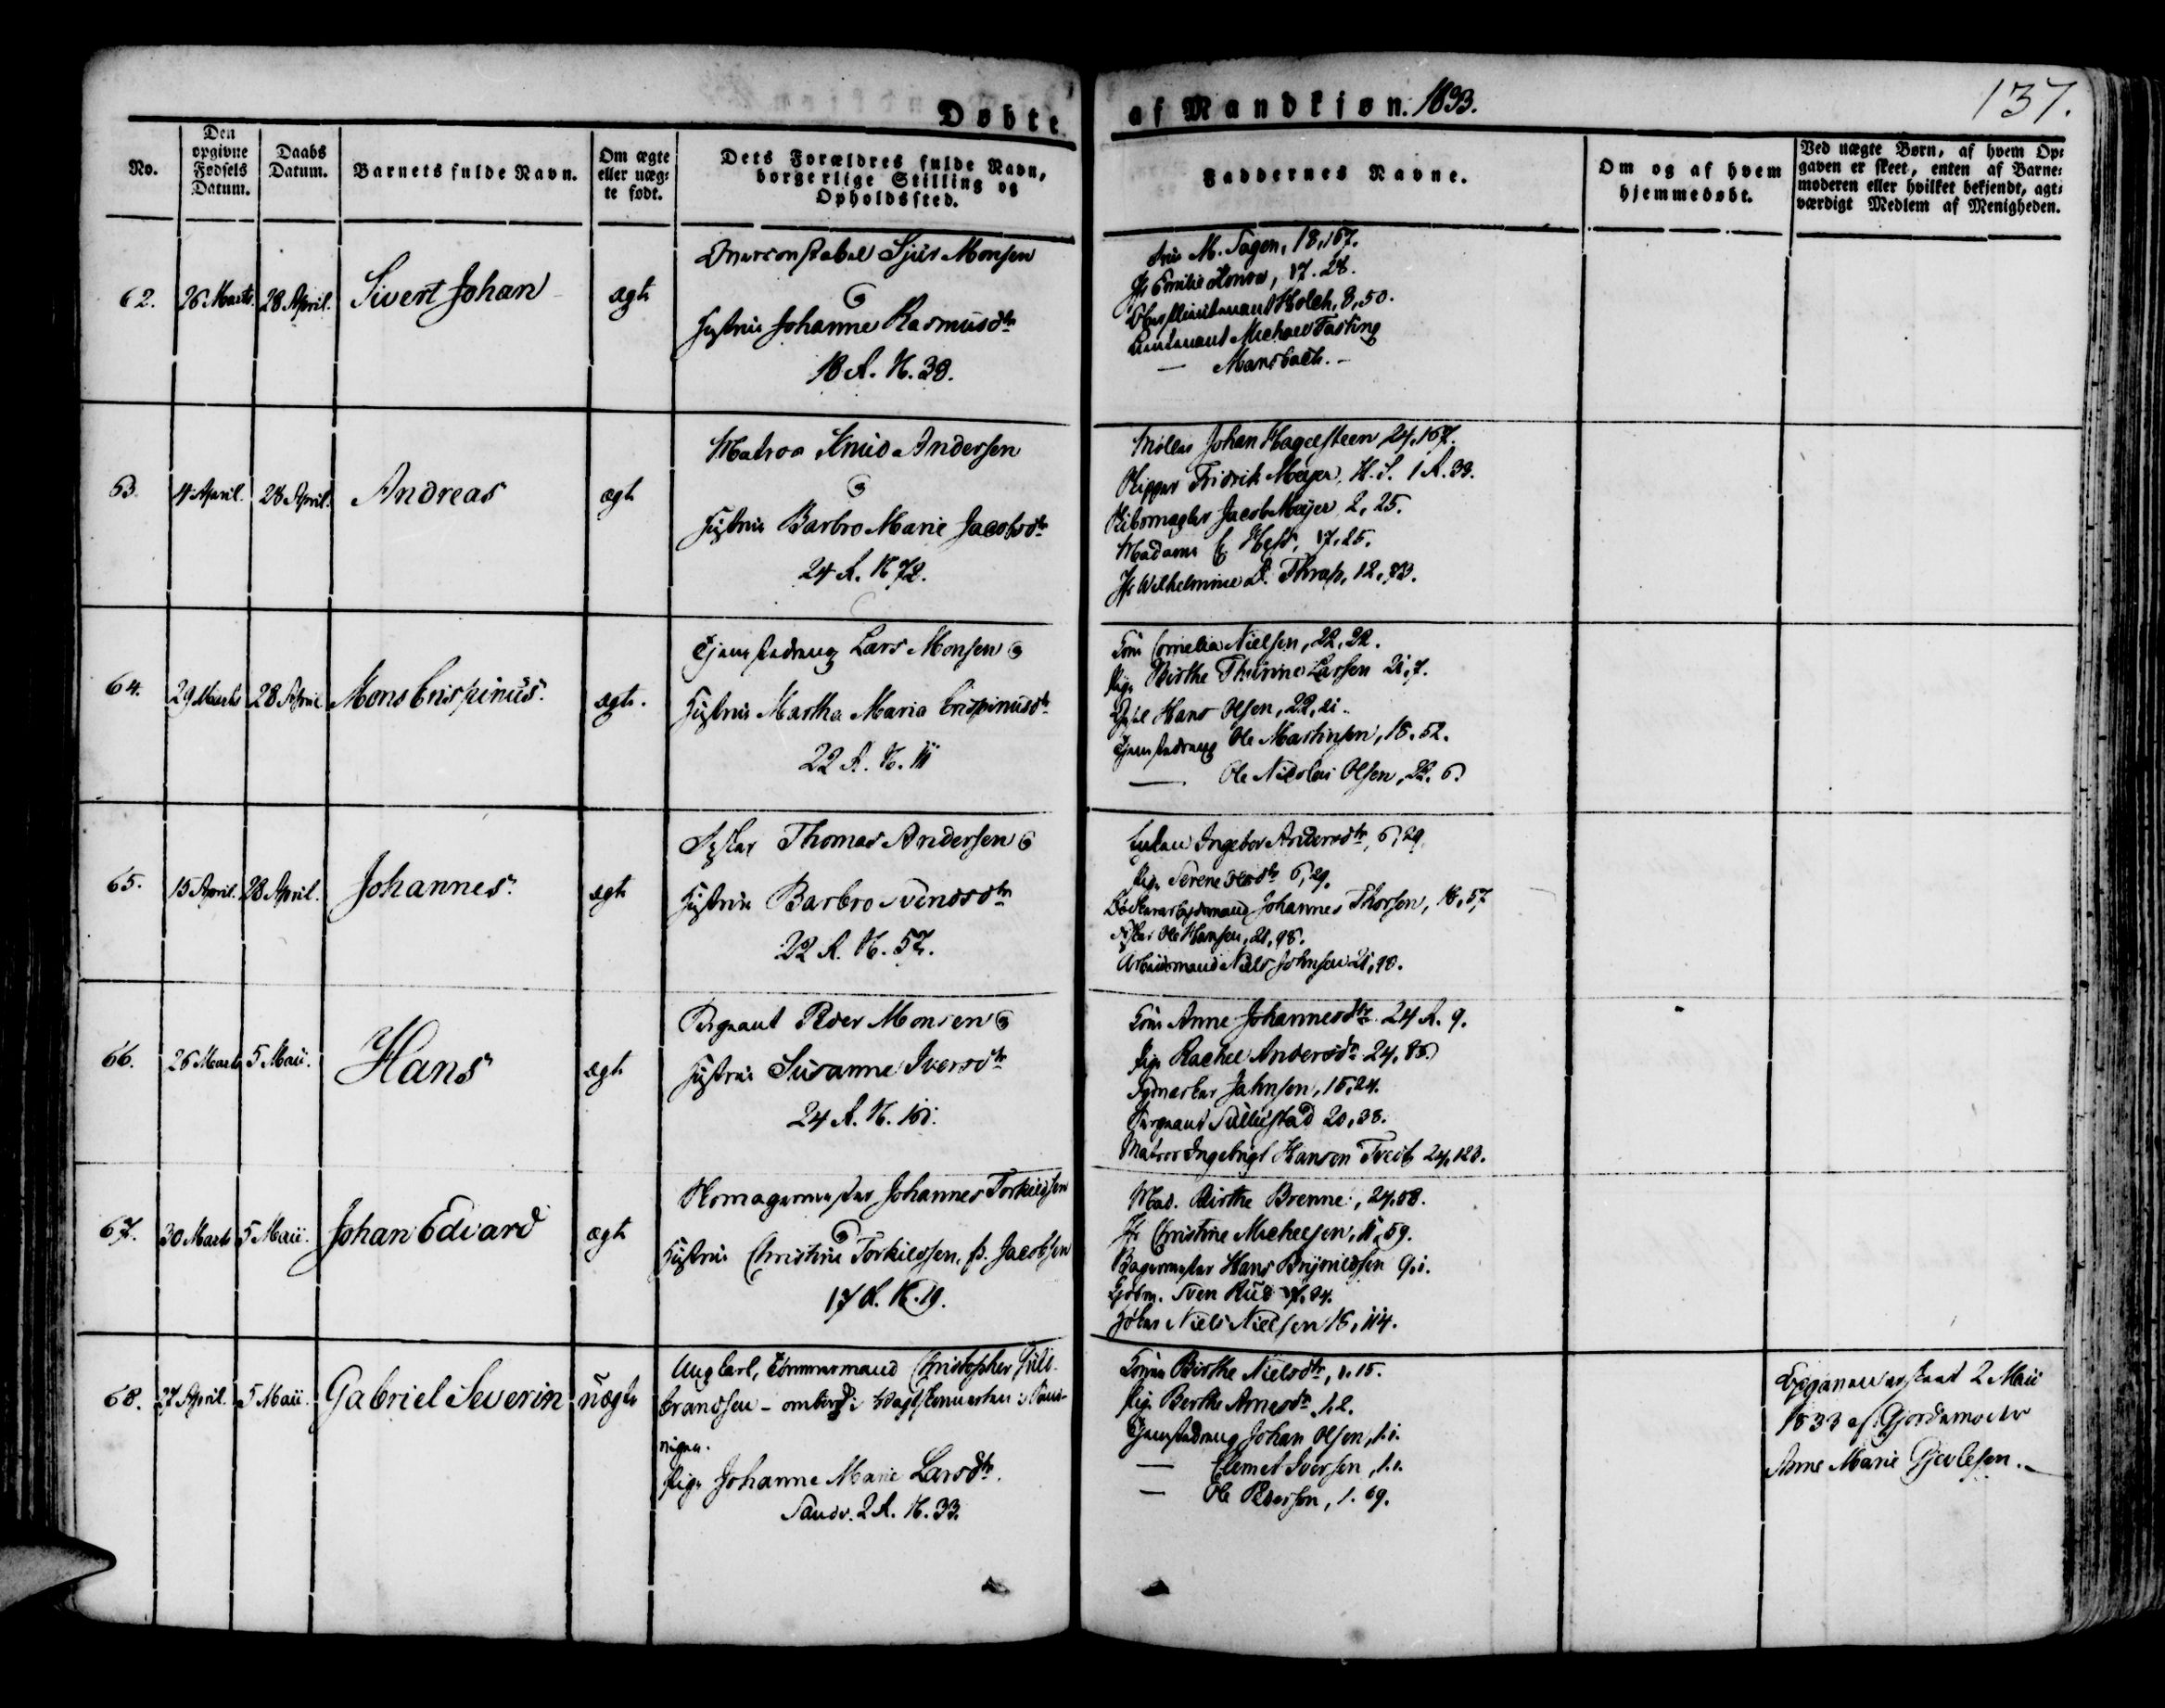 Døbte af Mandkjøn. 1833.
137.
No.
Den opgivne Fødsels Datum.
Daabs Datum.
Barnets fulde Navn.
Om ægte eller uægte født.
Dets Forældres fulde Navn, borgerlige Stilling og Opholdssted.
Faddernes Navne.
Om og af hvem hjemmedøbt.
Ved uægte Børn, af hvem Opgaven er skeet, enten af Barnemoderen eller hvilket bekjendt, agtværdigt Medlem af Menigheden.
62. 26 Marts. 28 April. Sivert Johan ægte
Overconstabel Sjur Monsen
Hustrue Johanne Rasmusdtr
18 A. N. 38.
M. Fagen, 18, 167.
Jfr Emilie 17. 28.
Oberstlieutenant Holck, 8, 50.
Lieutenant Michael Fasting
— Mansbach. —
63. 4 April. 28 April. Andreas ægte
Matros Knud Andersen
Hustrue Barbro Marie Jacobsdtr
24 A. N 72.
Møller Johan Hagelsteen 24, 167.
Skipper Fridrik Meyer, N. S. 1 A. 33.
Jacob Meyer 2, 25.
Madame Hess, 17, 25.
Jfr Wilhelmine D. Thrap, 12, 73.
64. 29 Marts 28 April Mons Crispinus. ægte.
Tjenestedreng Lars Monsen
Hustrue Martha Maria Crispinusdtr
22 A. N. 11
Kone Cornelia Nielsen, 22, 22.
Pige Birthe Thrine Larsen 21, 7.
Hans Olsen, 22, 21.
Tjenestedreng Ole Martinsen, 18. 52.
— Ole Nicolai Olsen, 22. 6.
65. 15 April. 28 April. Johannes. ægte
Thomas Andersen
Hustrue Barbro Svendsdtr
22 A. N. 57.
Enken Ingebor Andersdtr, 6, 29.
Pige Serene Olsdtr 6, 29.
Johannes Thorsen, 18, 57
Ole Hansen, 21, 98.
Arbeidsmand Niels Johnsen 21, 98.
66. 26 Marts 5 Maii. Hans ægte
Sergeant Peder Monsen
Hustrue Susanne Iversdtr
24 A. N. 101.
Kone Anne Johannesdtr 24 A. 9.
Pige Rachel Andersdtr 24, 85.
Johnsen, 15, 24.
Sergeant Tullestad 20, 38.
Matros Ingebrigt Hansen Tvedt 24, 123.
67. 30 Marts 5 Maii. Johan Edvard ægte
Skomagermester Johannes Torkildsen
Hustrue Christine Torkildsen, f. Jacobsen
17 A. N. 19.
Mad. Birthe Brenne, 24, 58.
Jfr Christine Michelsen, 11, 59.
Bagermester Hans Brynildsen 9, 1.
Sven Rud 17, 24.
Høker Niels Nielsen 16, 114.
68. 27 April. 5 Maii. Gabriel Severin uægte
Ungkarl, Tømmermand Christopher
Pige Johanne Marie Larsdtr.
Sandv. 2 A. N. 33.
Konen Birthe Nielsdtr, 1. 15.
Pige Berthe Arnesdtr 1. 2.
Tjenestedreng Johan Olsen, 1. 1.
— Clemet Iversen, 1. 1.
— Ole Pedersen, 1. 69.
Opgaven er skeet 2 Maii
1833 af Gjordemoder
Anne Marie Gjerlesen. —